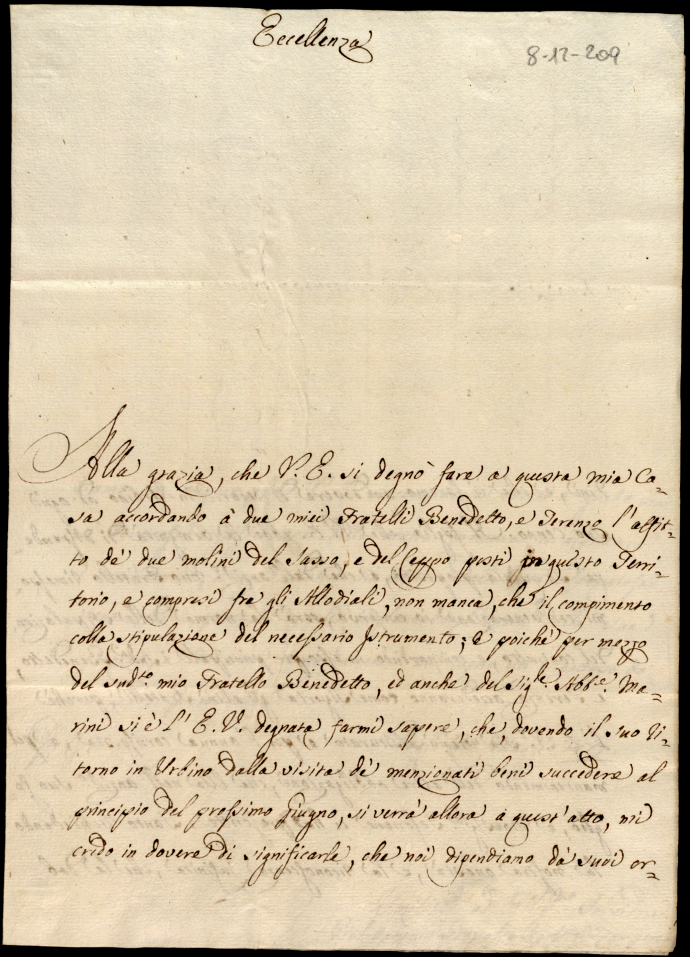 Eccellenza
8-12-209
Alla grazia, che V. E. si degnò fare a questa mia Ca=
sa accordando à due miei Fratelli Benedetto, e Terenzo l'affit=
to dè due molini del Sasso, e del Ceppo posti in questo Terri=
torio, e compresi fra gli Allodiali, non manca, che il compimento
colla stipulazione del necessario Istrumento; e poichè per mezzo
del sud.to mio Fratello Benedetto, ed anche del Sig.le Abb.e Ma=
rini si è l'E. V. degnata farmi sapere, che, dovendo il suo ri=
torno in Urbino dalla visita dè menzionati beni succedere al
principio del prossimo Giugno, si verrà allora a quest'atto, mi
credo in dovere di significarle, che noi dipendiamo dà suoi or=